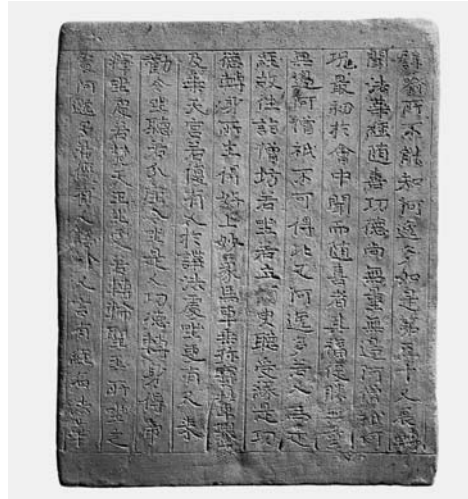 譬喻所不能知阿逸多如是第五十人展轉
聞法華經隨喜功德尚無量無邊阿僧祇何
況最初於會中聞而隨喜者其福復勝無量
無邊阿僧祇不可得比又阿逸多若人為是
經故往詣僧坊若坐若立須臾聽受緣是功
德轉身所生得好上妙象馬車乘珍寶輦輿
及乘天宮若復有人於講法處坐更有人來
勸令坐聽若分座令坐是人功德轉身得帝
釋坐處若梵天王坐處若轉輪聖王所坐之
處阿逸多若復有人語餘人言有經名法華